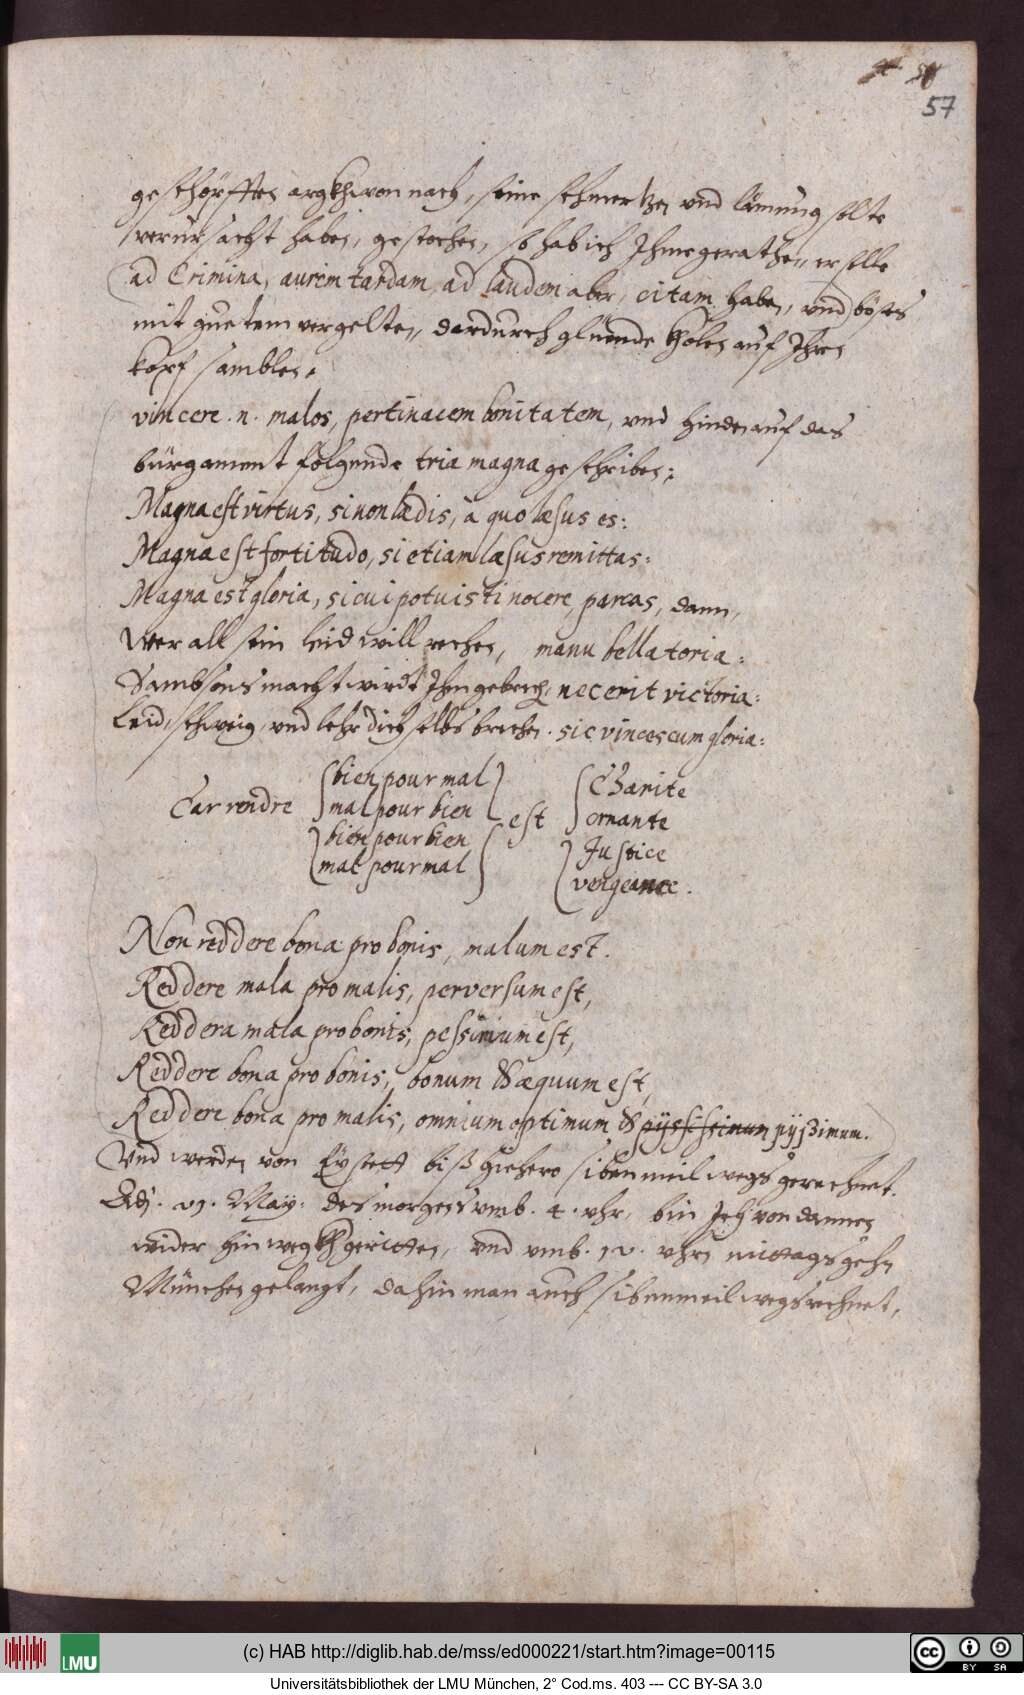 57
geschöpfften argkhwon nach, seine schmertzen vnd lämung solte
verursacht haben, gestochen, so hab ich Ihme gerathen, er solle
ad Crimina, aurem tardam, ad laudem aber, citam haben, vnd böses
mit guetem vergelten, dardurch gluende kholen auf Ihren
kopf samblen.
vincere .n. malos, pertinacem bonitatem, vnd hinden auf das
bürgament folgende tria magna geschriben:
Magna est virtus, si non lædis, à quo læsus es:
Magna est fortitudo, si etiam læsus remittas:
Magna est gloria, si cui potuisti nocere, parcas, dann,
Wer all sein leid will rechen, manu bellatoria:
Sambsons macht wirdt Ihm gebrech, nec erit victoria:
Leid, schweig, vnd lehr dich selbs brechen. sic vinces cum gloria:
Car rendre bien pour mal est Charite
mal pour bien
bien pour bien Justice
mal pour mal vengeance.
Non reddere bona pro bonis, malum est.
Reddere mala pro malis, perversum est,
Reddera mala pro bonis, pessimum est,
Reddere bona pro bonis, bonum & æquum est,
Reddere bona pro malis, omnium optimum & pijssissimum pijßimum.
Vnd werden von Eystett biß hiehero siben meil wegs gerechnet.
Adj. 21. May: des morgens vmb .4. vhr, bin Ich von dannen
wider hinwegkh geritten, vnd vmb .12. vhrn mittags gehn
München gelangt, dahin man auch siben meil wegs rechnet,
(c) HAB http://diglib.hab.de/mss/ed000221/start.htm?image=00115
LMU
cc BY SA
Universitätsbibliothek der LMU München, 2° Cod.ms. 403 --- CC BY-SA 3.0